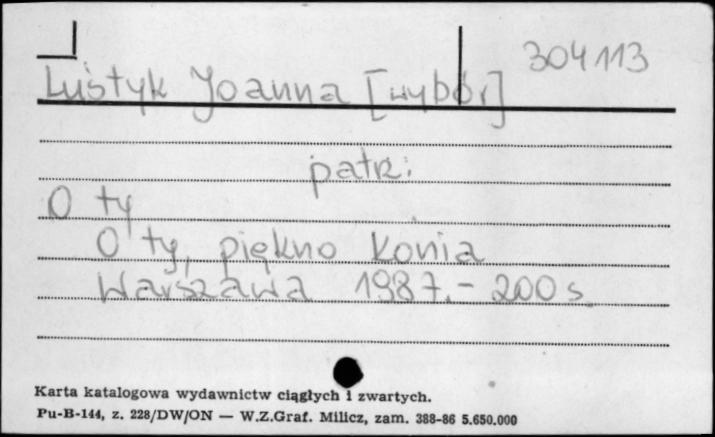 304113
Luśtyk Joanna [wybór]
patrz:
O ty
O ty, piękno konia
Warszawa 1987. - 200 s.
Karta katalogowa wydawnictw ciągłych i zwartych.
Pu-B-144, z. 228/DW/ON — W.Z.Graf. Milicz, zam. 388-86 5.650.000